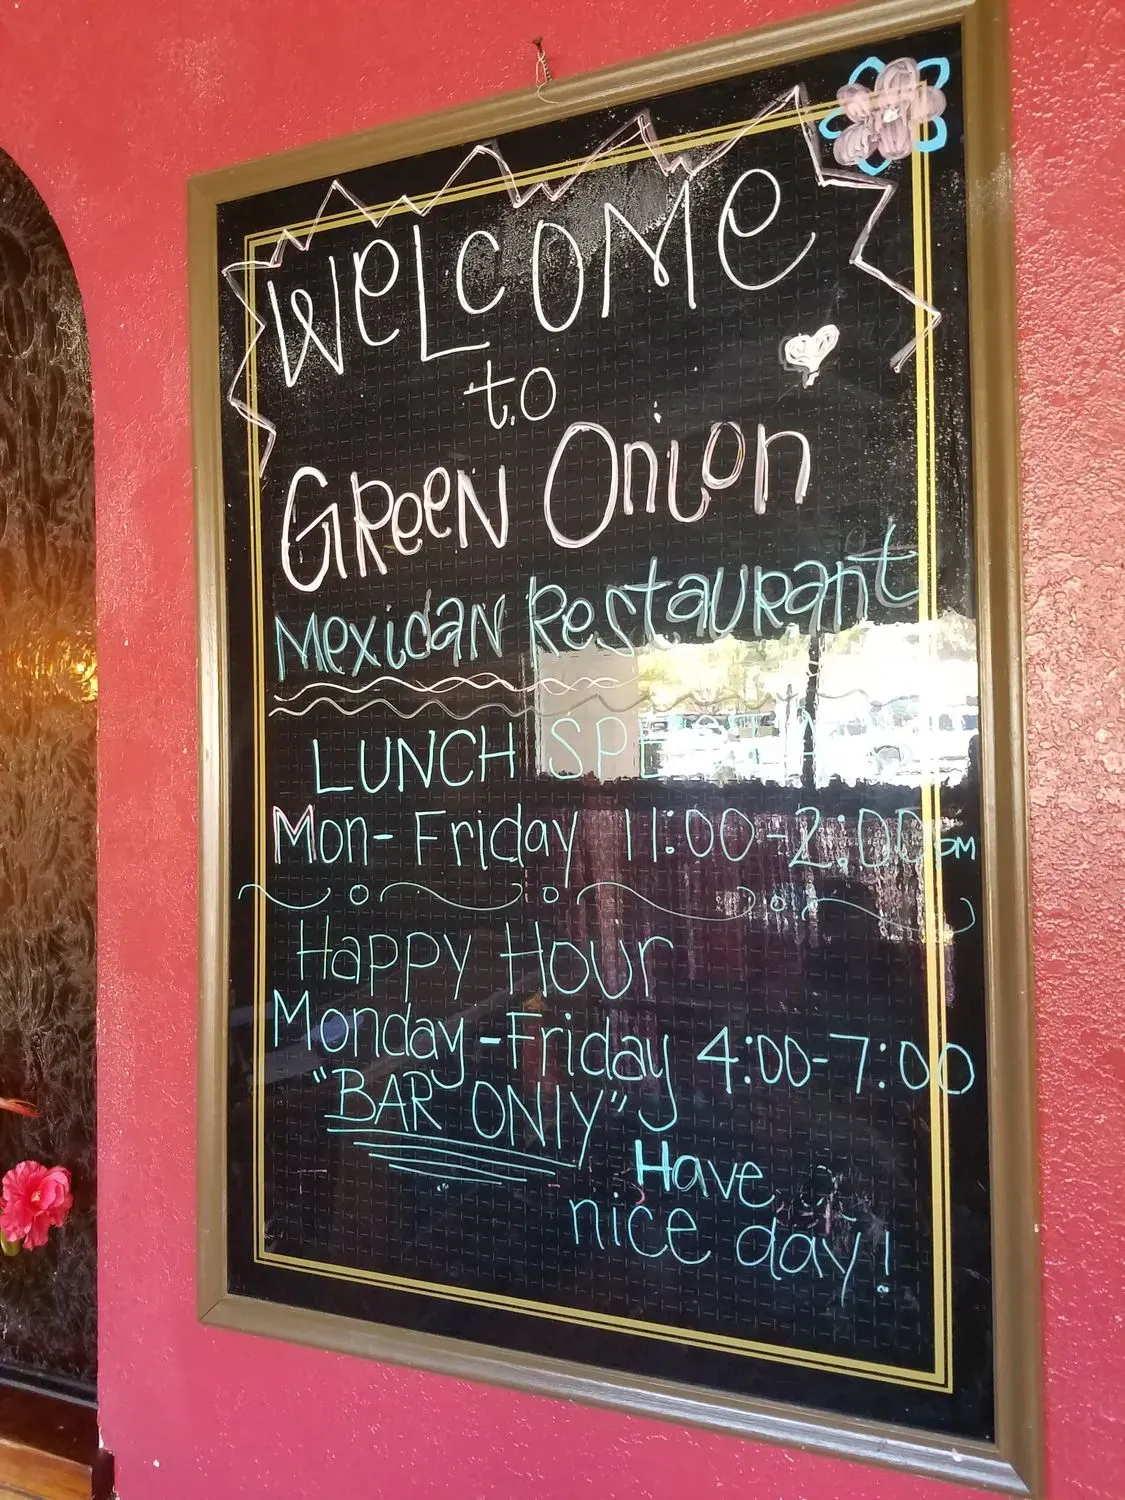 WeLCOMe
to
GReeN Onion
MexicaN RestauRant
LUNCH
Mon-Friday 11:00-2:00PM
Happy Hour
Monday-Friday 4:00-7:00
"BAR ONLY"
Have
nice day!